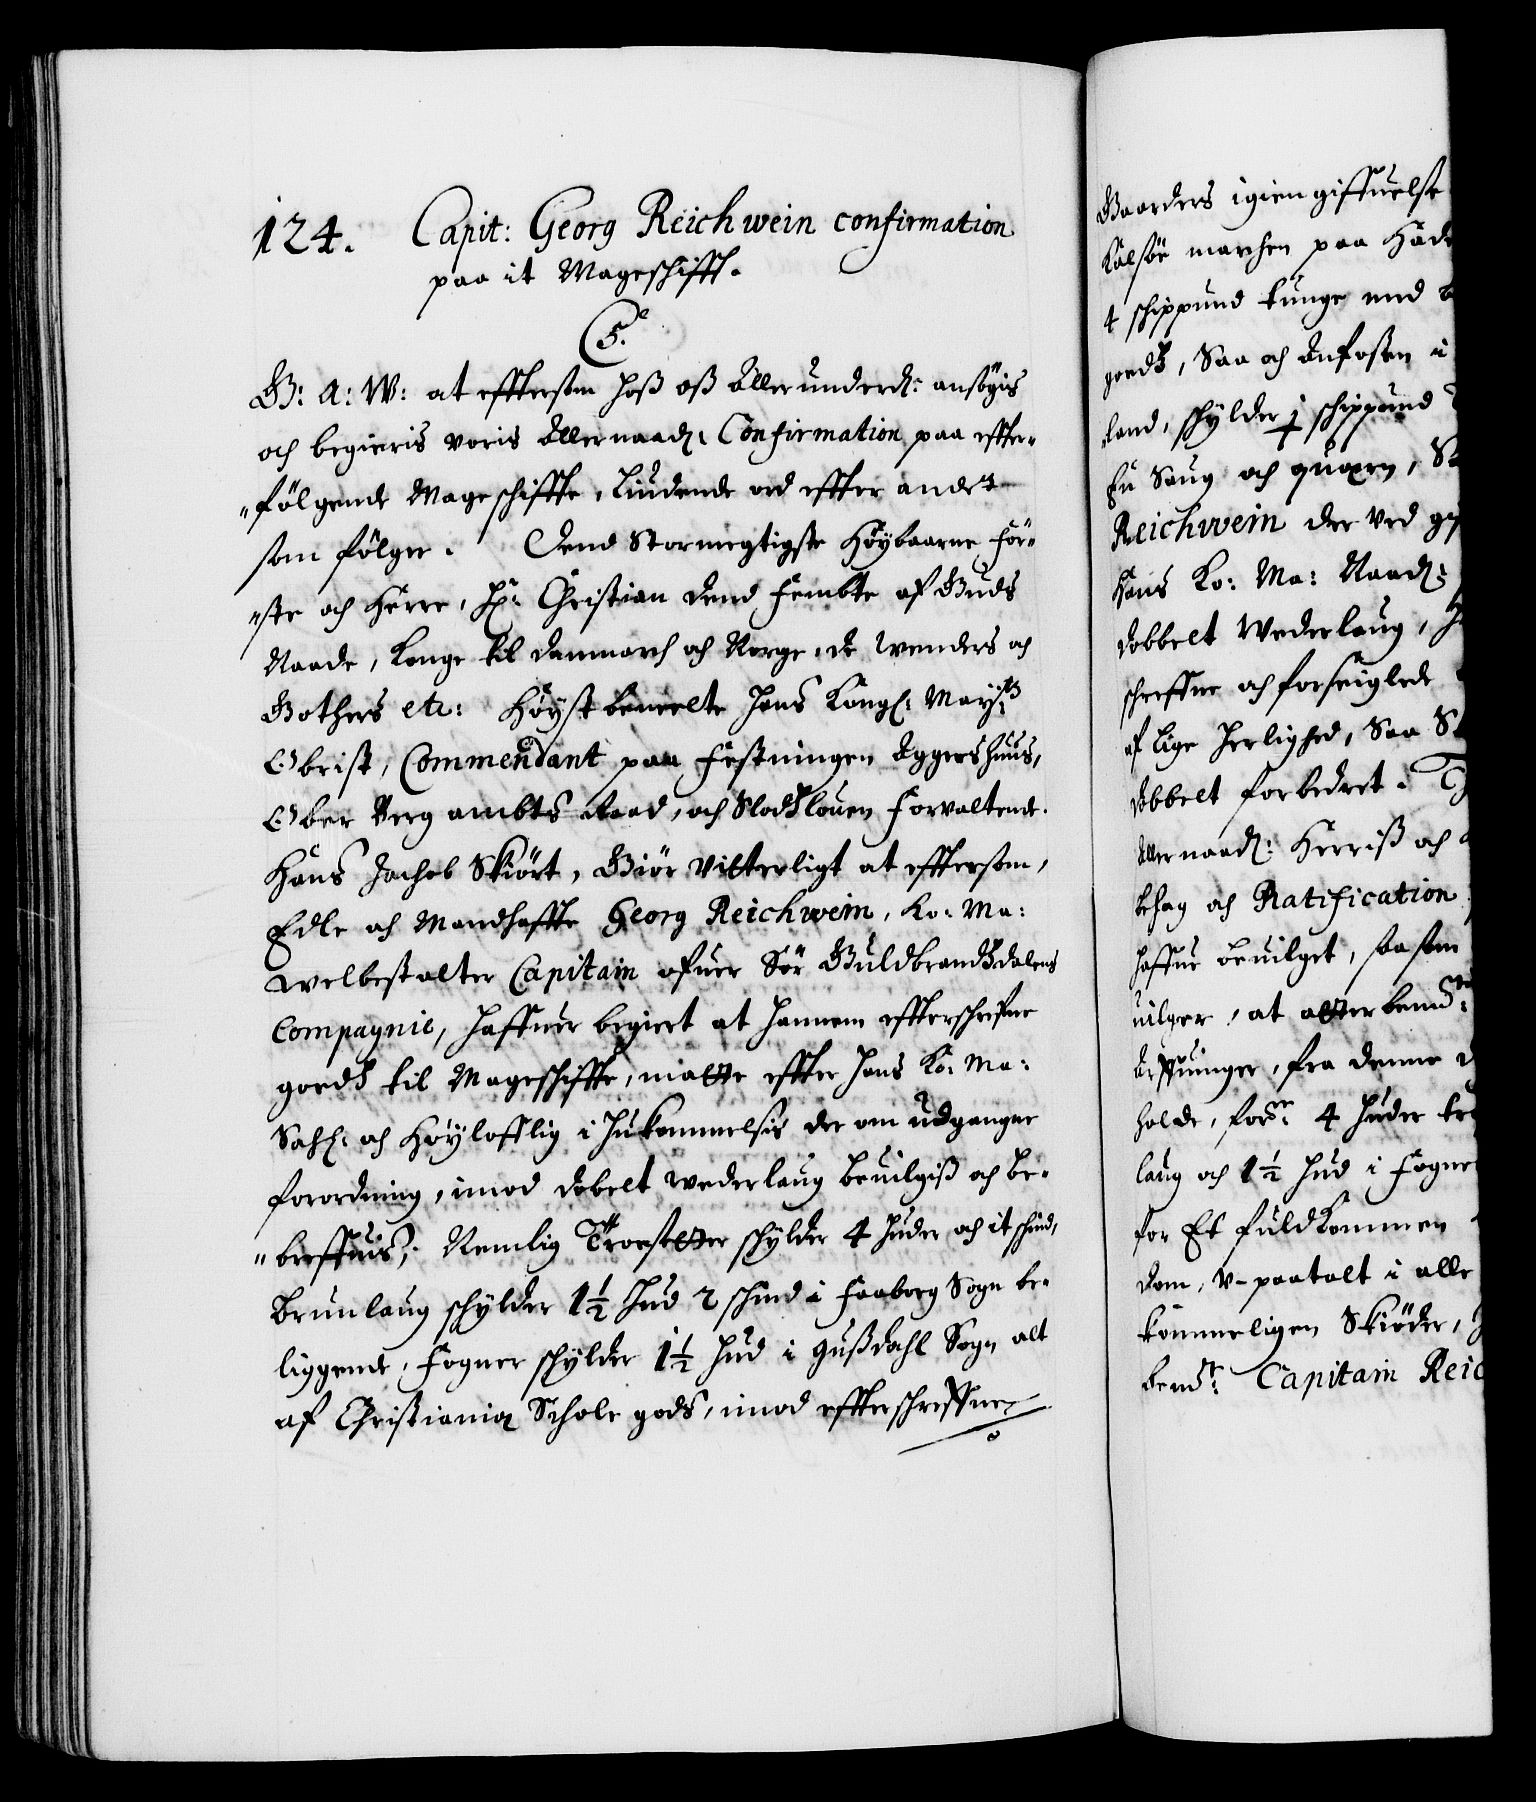 124. Capit: Georg Reichwein confirmation
paa it Mageschifft.
C 5.
G: A: W: at effttersom hoß oß Allerunderd: ansögis
och begieris voris Allernaad: Confirmation paa effter-
"följgende Mageschiffte, Liudende ord effter andet
som fölger. Dend Stormegtigste Höybaarne För-
"ste och Herre, Hr: Christian dend Fembte af Guds
Naade, Konge til Danmarch och Norge, de Wenders och
Gothers etc: Höystbemelte Hans Kongl: Mayts
Obrist, Commendant paa Festningen Aggershuus,
Ober Berg ambts Raad, och Slodslouen Forvaltende.
Hans Jachob Skiört, Giör Vitterligt at effttersom,
Edle och Mandhaffte Georg Reichwein, Ko: Ma:
welbestalter Capitain ofuer Sör Guldbrandsdalens
Compagnie, haffuer begiert at hannem effterschrefne
goeds til Mageschiffte, maatte effter Hans Ko: Ma:
Sahl: och Höylofflig i Hukommelsis der om udgangne
forordning, imod dobelt wederlaug beuilgiß och be-
"breffuis; Nemlig Troesetter schylder 4 huder och it schind,
Brunlaug schylder 1½ hud 2 schind i Faaborg Sogn be-
liggende, Fogner schylder 1½ hud i Gußdahl Sogn alt
af Christiania Schole gods, imod effterschreffne
Gaarders igiengiffuelse
Kalsöe marchen paa Hade
4 schippund tunge med
goeds, Saa och Anfosten i
land, schylder 1 schippund
En Saug och quern, Sa
Reichwein der ved
Hans Ko: Ma: Naad:
dobbelt Wederlaug,
schreffne och forseiglede
af lige herlighed, Saa
dobbelt forbedret.
Allernaad: Herriß och
behag och Ratification
haffue beuilget, saasom
uilger, at atterbemte:
arffuinger, fra denne
holde, forne 4 huder
laug och 1½ hud i Fogner
for Et fuldkommen
dom, V-paatalt i alle
kommeligen Skiöder,
bemte: Capitain Reic